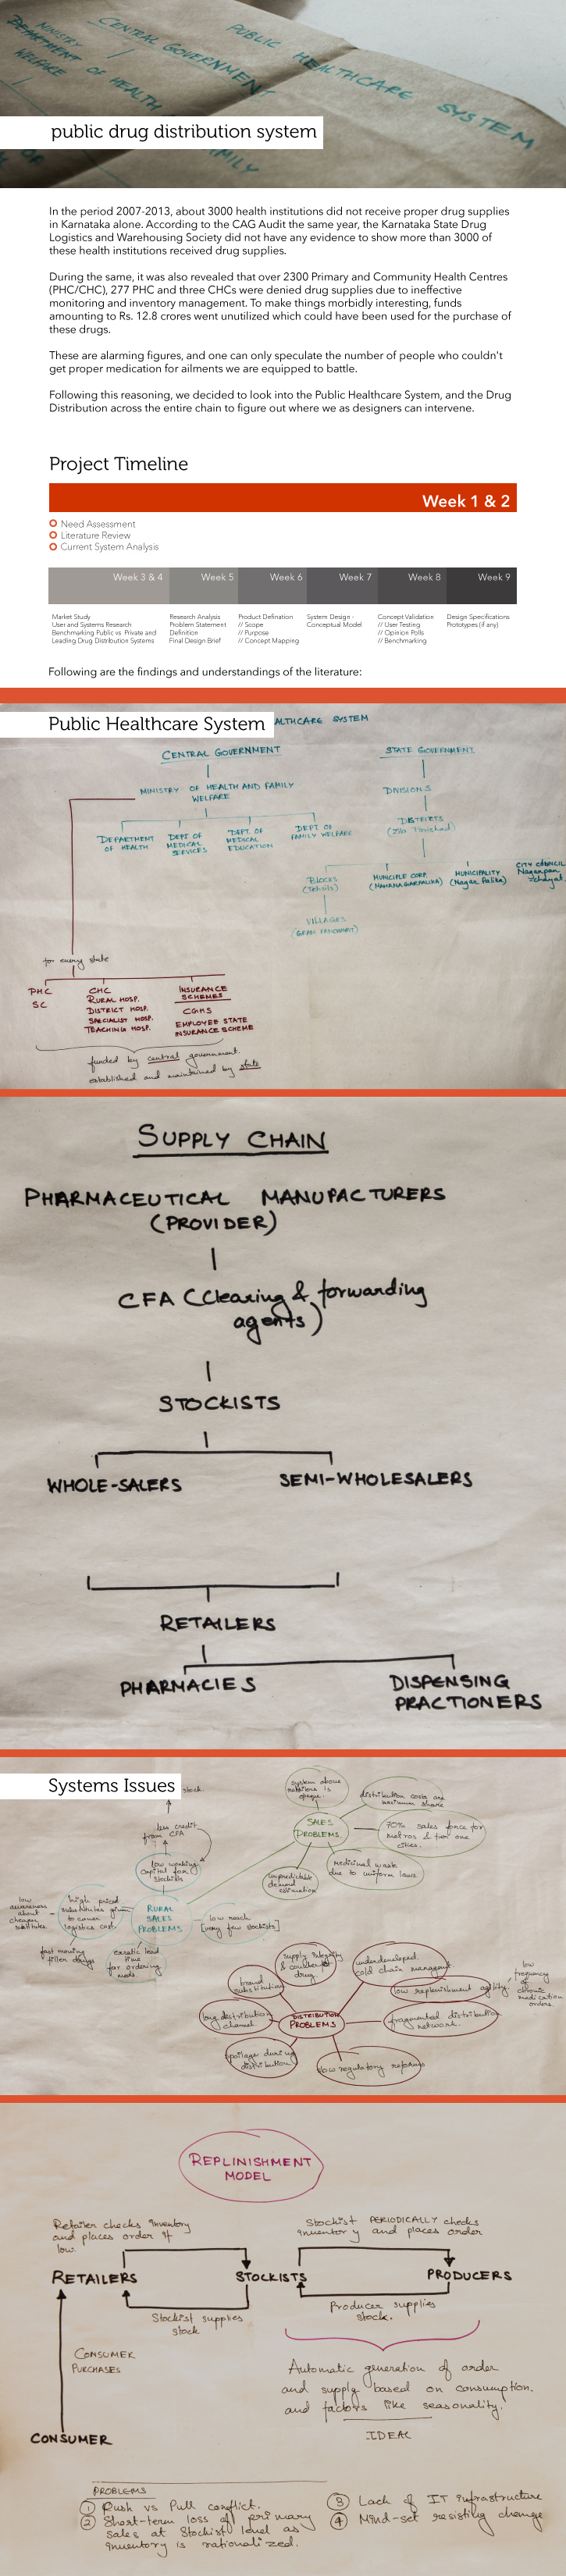 MINISTRY
DEPARTMENT OF HEALTH
WELFARE
CENTRAL GOVERNMENT
PUBLIC HEALTHCARE SYSTEM
OF
FAMILY
public drug distribution system
In the period 2007-2013, about 3000 health institutions did not receive proper drug supplies
in Karnataka alone. According to the CAG Audit the same year, the Karnataka State Drug
Logistics and Warehousing Society did not have any evidence to show more than 3000 of
these health institutions received drug supplies.
During the same, it was also revealed that over 2300 Primary and Community Health Centres
(PHC/CHC), 277 PHC and three CHCs were denied drug supplies due to ineffective
monitoring and inventory management. To make things morbidly interesting, funds
amounting to Rs. 12.8 crores went unutilized which could have been used for the purchase of
these drugs.
These are alarming figures, and one can only speculate the number of people who couldn't
get proper medication for ailments we are equipped to battle.
Following this reasoning, we decided to look into the Public Healthcare System, and the Drug
Distribution across the entire chain to figure out where we as designers can intervene.
Project Timeline
Week 1 & 2
Need Assessment
Literature Review
Current System Analysis
Week 3 & 4
Week 5
Week 6
Week 7
Week 8
Week 9
Market Study
User and Systems Research
Benchmarking Public vs. Private and
Leading Drug Distribution Systems
Research Analysis
Problem Statement
Definition
Final Design Brief
Product Defination
// Scope
// Purpose
// Concept Mapping
System Design -
Conceptual Model
Concept Validation
// User Testing
// Opinion Polls
// Benchmarking
Design Specifications
Prototypes (if any)
Following are the findings and understandings of the literature:
Public Healthcare System
ALTHCARE SYSTEM
CENTRAL GOVERNMENT
MINISTRY OF HEALTH AND FAMILY
WELFARE
DEPARTMENT
OF HEALTH
DEPT OF
MEDICAL
SERVICES
DEPT. OF
MEDICAL
EDUCATION
DEPT OF
FAMILY WELFARE
STATE GOVERNMENT
DIVISIONS
DISTRICTS
(Zila Parishad)
BLOCKS
(Tehsils)
MUNICIPLE CORP.
(MAHANAGARPALIKA)
MUNICIPALITY
(Nagar Palika)
CITY COUNCIL
VILLAGES
(GRAM PANCHAYAT)
for every state
PHC
SC
CHC
RURAL HOSP.
DISTRICT HOSP.
SPECIALIST HOSP.
TEACHING HOSP.
INSURANCE
SCHEMES
CGHS
EMPLOYEE STATE
INSURANCE SCHEME
funded by central government.
established and maintained by state
SUPPLY CHAIN
PHARMACEUTICAL MANUFACTURERS
(PROVIDER)
CFA (Clearing & forwarding
agents)
STOCKISTS
WHOLE-SALERS
SEMI-WHOLESALERS
RETAILERS
PHARMACIES
DISPENSING
PRACTIONERS
Systems Issues
stock.
less credit
from CFA
low working
capital for
stockists
low
awareness
about
cheaper
substitutes
high priced
substitutes given
to cover
logistics cost
RURAL
SALES
PROBLEMS
low reach
[very few stockists]
fast moving
filler drugs
erratic lead
time
for ordering
meds.
system above
retailers is
opaque
distribution costs are
maximum share
SALES
PROBLEMS
70% sales force for
metros & tier one
cities.
unpredictable
demand
estimation
medicinal waste
due to uniform laws
supply integrity
& counterfeit
drug.
underdeveloped
cold chain managemt
brand
substitution
low replenishment agility
low
frequency
of
chronic
medication
orders.
long distribution
channel
DISTRIBUTION
PROBLEMS
fragmented distribution
network.
spoilage during
distribution
slow regulatory reforms
REPLINISHMENT
MODEL
Retailer checks inventory
and places order if
low.
Stockist PERIODICALLY checks
inventory and places order
RETAILERS
STOCKISTS
PRODUCERS
Stockist supplies
stock
Producer supplies
stock.
CONSUMER
PURCHASES
Automatic generation of order
and supply based on consumption.
and factors like seasonality.
IDEAL
CONSUMER
PROBLEMS
① Push vs Pull conflict.
② Short-term loss of primary
sales at Stockist level as
inventory is rationalized.
③ Lack of IT infrastructure
④ Mind-set resisting change